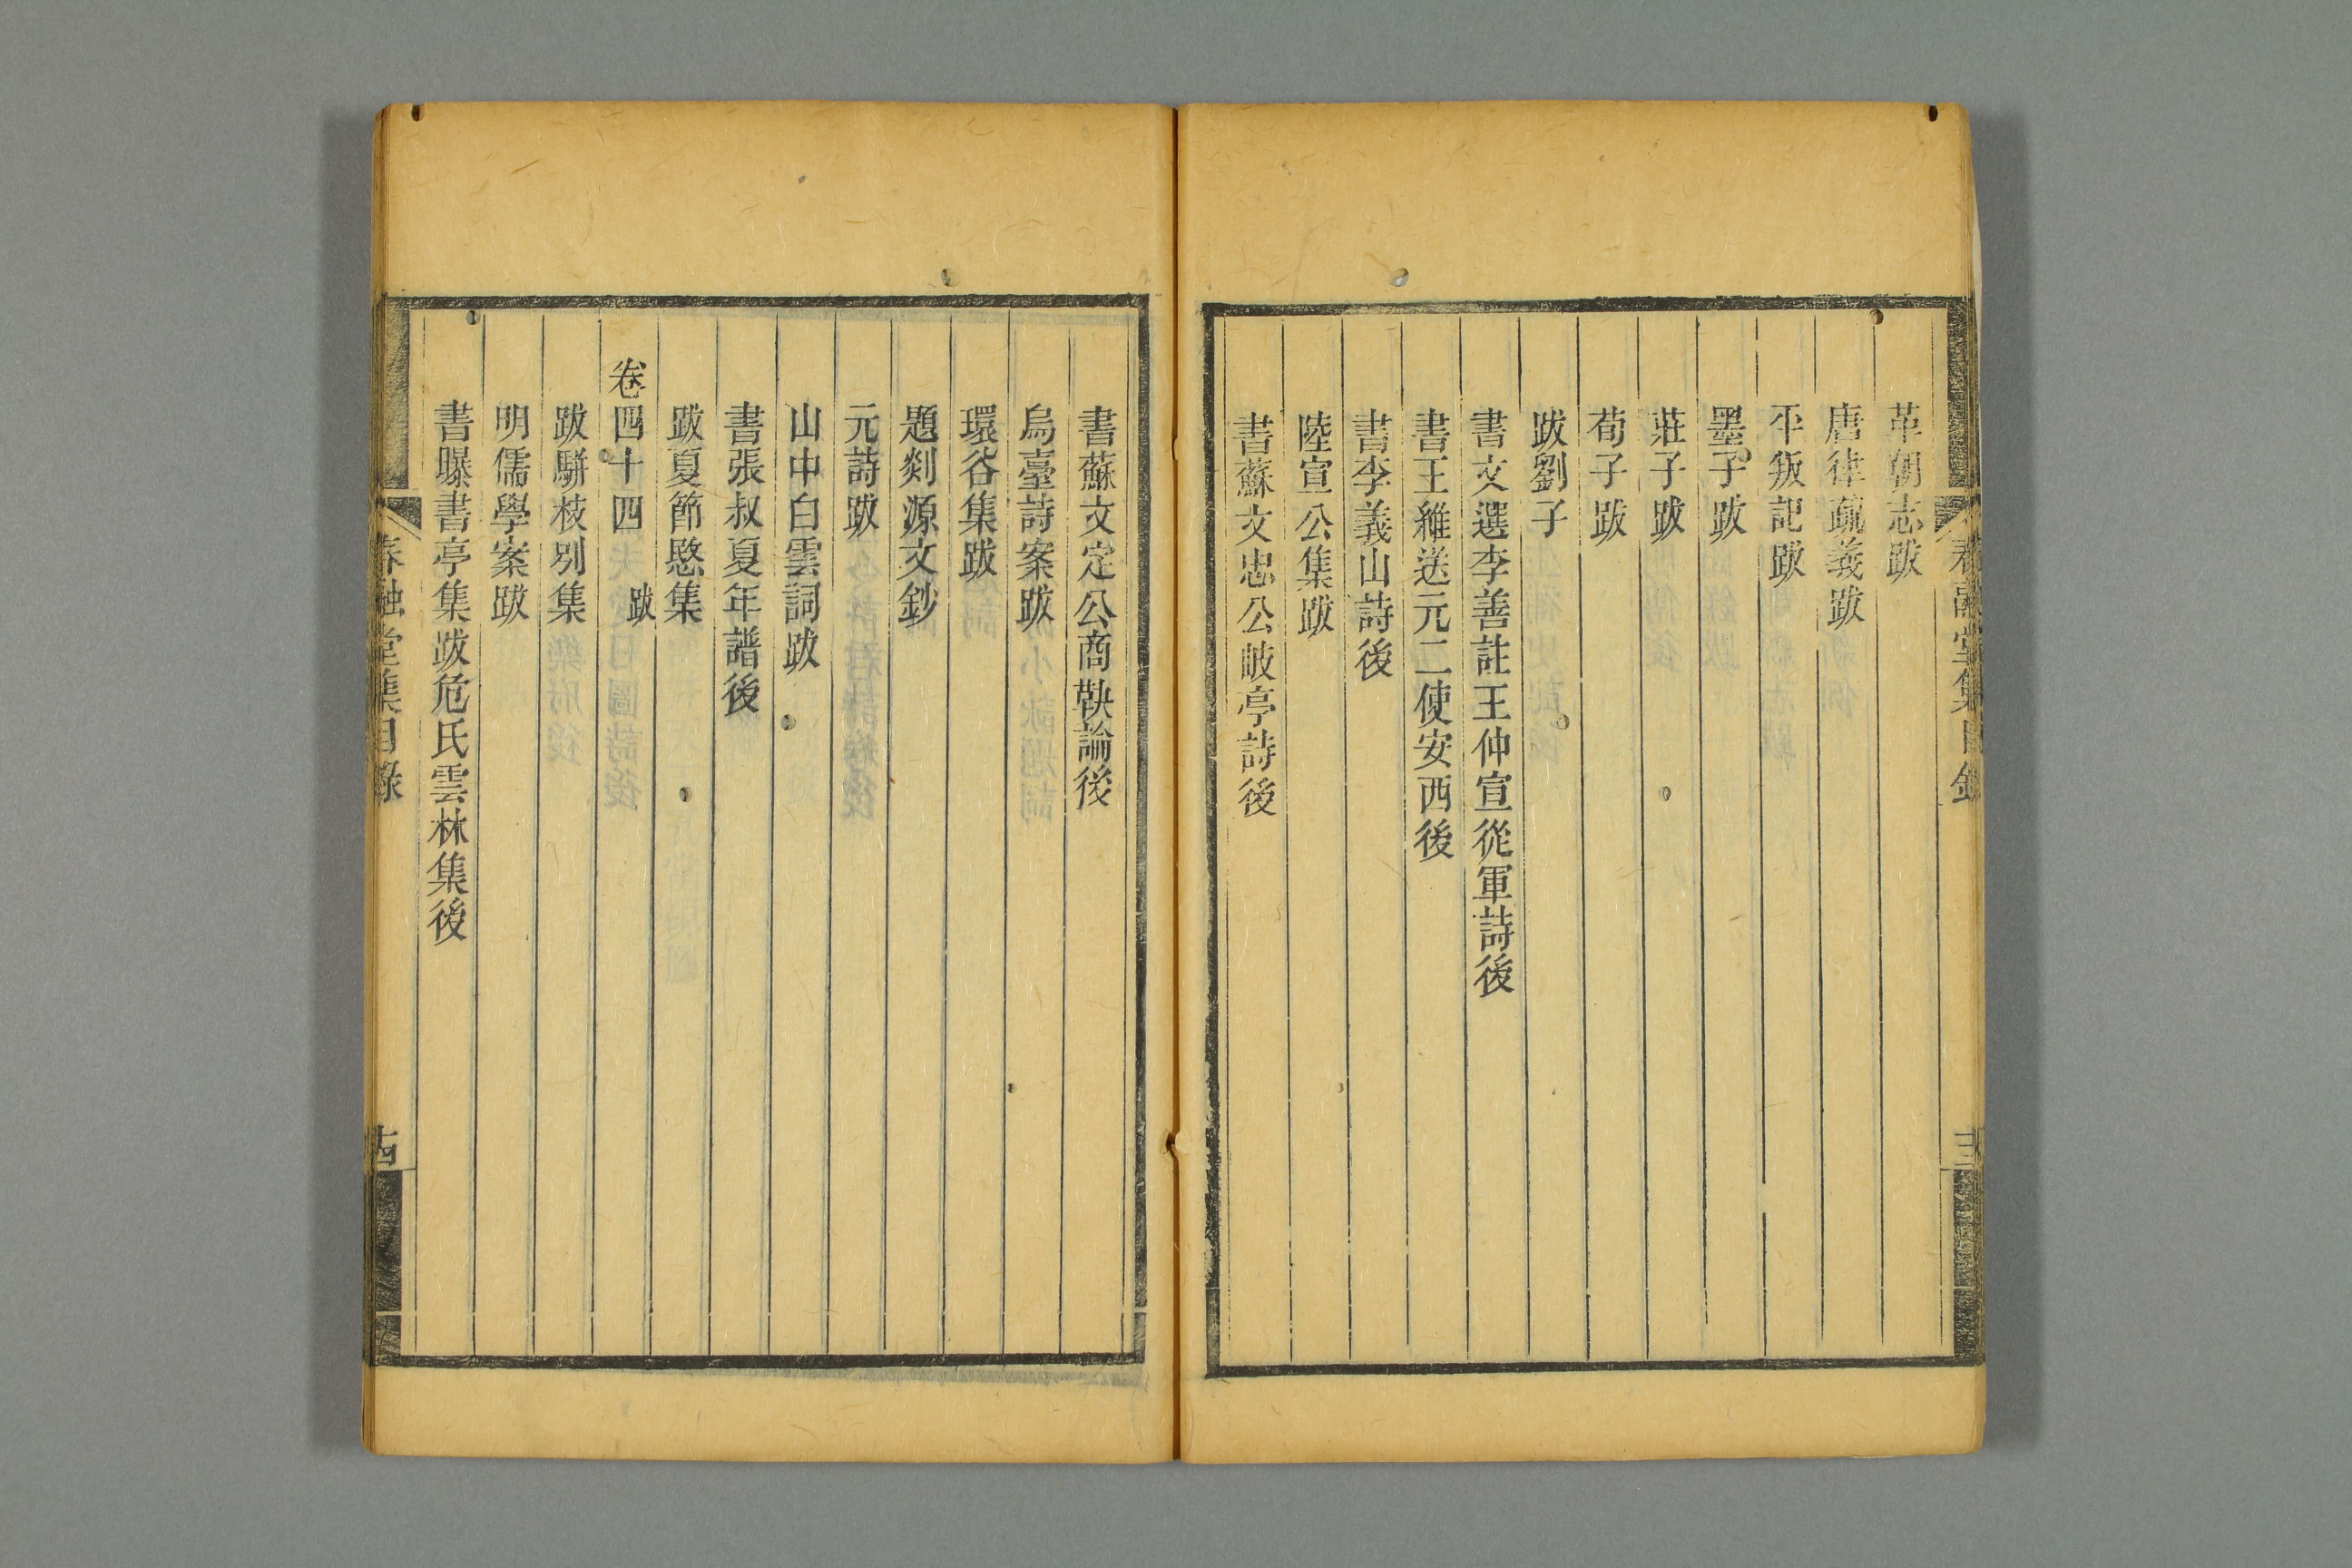 春融堂集目錄
革朝志跋
唐律疏義跋
平叛記跋
墨子跋
莊子跋
荀子跋
跋劉子
書文選李善註王仲宣從軍詩後
書王維送元二使安西後
書李義山詩後
陸宣公集跋
書蘇文忠公岐亭詩後
書蘇文定公商鞅論後
烏臺詩案跋
環谷集跋
題剡源文鈔
元詩跋
山中白雲詞跋
書張叔夏年譜後
跋夏節愍集
卷四十四 跋
跋駢枝別集
明儒學案跋
書曝書亭集跋危氏雲林集後
春融堂集目錄